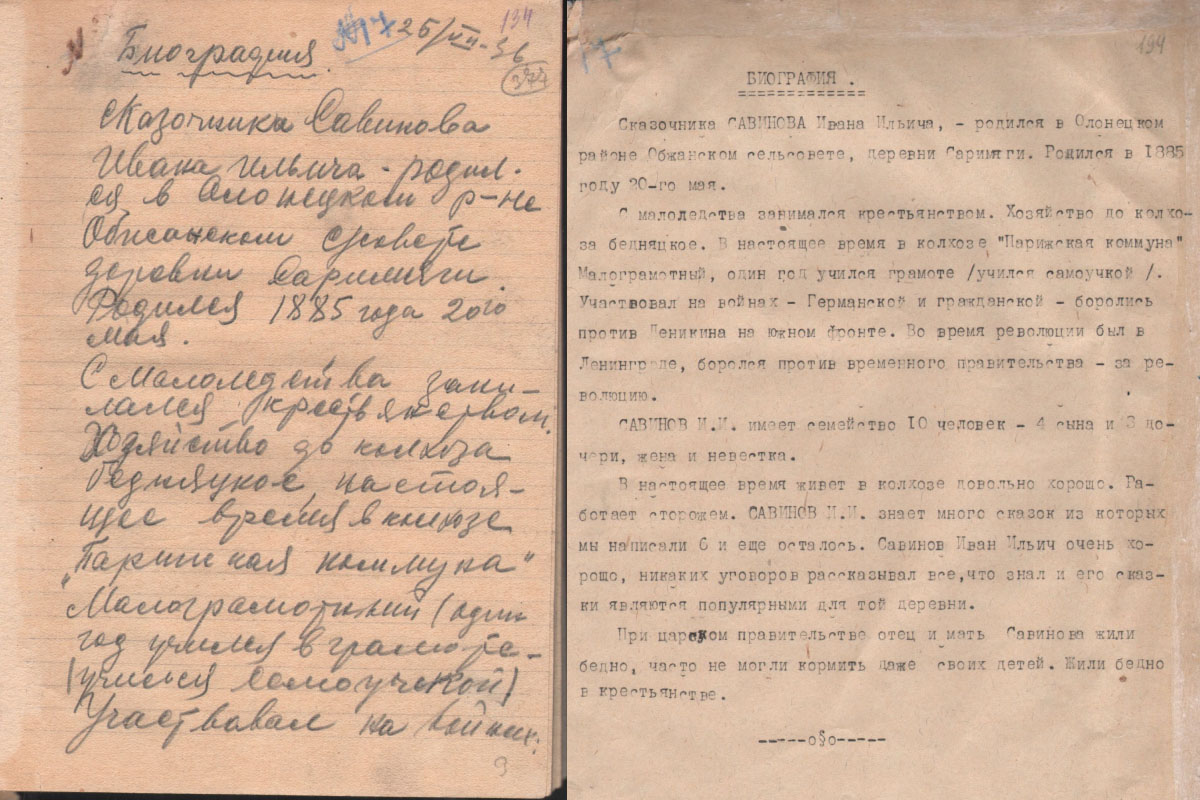 №17 25/VII-36
134
374
Биография.
сказочника Савинова
Ивана Ильича - родил-
ся в Олонецком р-не
Обжанском с/совете
деревни Саримяги.
Родился 1885 года 20го
мая.
С малоледства зани-
мался крестьянством.
Хозяйство до колхоза
бедняцкое, настоя-
щее время в колхозе
"Парижская коммуна"
Малограмотный (один
год учился в грамоте -
(учился самоучкой)
Участвовал на войнах:
9
17
194
БИОГРАФИЯ .
============
Сказочника САВИНОВА Ивана Ильича, - родился в Олонецком
районе Обжанском сельсовете, деревни Саримяги. Родился в 1885
году 20-го мая.
С малоледства занимался крестьянством. Хозяйство до колхо-
за бедняцкое. В настоящее время в колхозе "Парижская коммуна"
Малограмотный, один год учился грамоте /учился самоучкой /.
Участвовал на войнах - Германской и гражданской - боролись
против Деникина на южном фронте. Во время революции был в
Ленинграде, боролся против временного правительства - за ре-
волюцию.
САВИНОВ И.И. имеет семейство 10 человек - 4 сына и 3 до-
чери, жена и невестка.
В настоящее время живет в колхозе довольно хорошо. Ра-
ботает сторожем. САВИНОВ И.И. знает много сказок из которых
мы написали 6 и еще осталось. Савинов Иван Ильич очень хо-
рошо, никаких уговоров рассказывал все,что знал и его сказ-
ки являются популярными для той деревни.
При царском правительстве отец и мать Савинова жили
бедно, часто не могли кормить даже своих детей. Жили бедно
в крестьянстве.
-----о§о-----